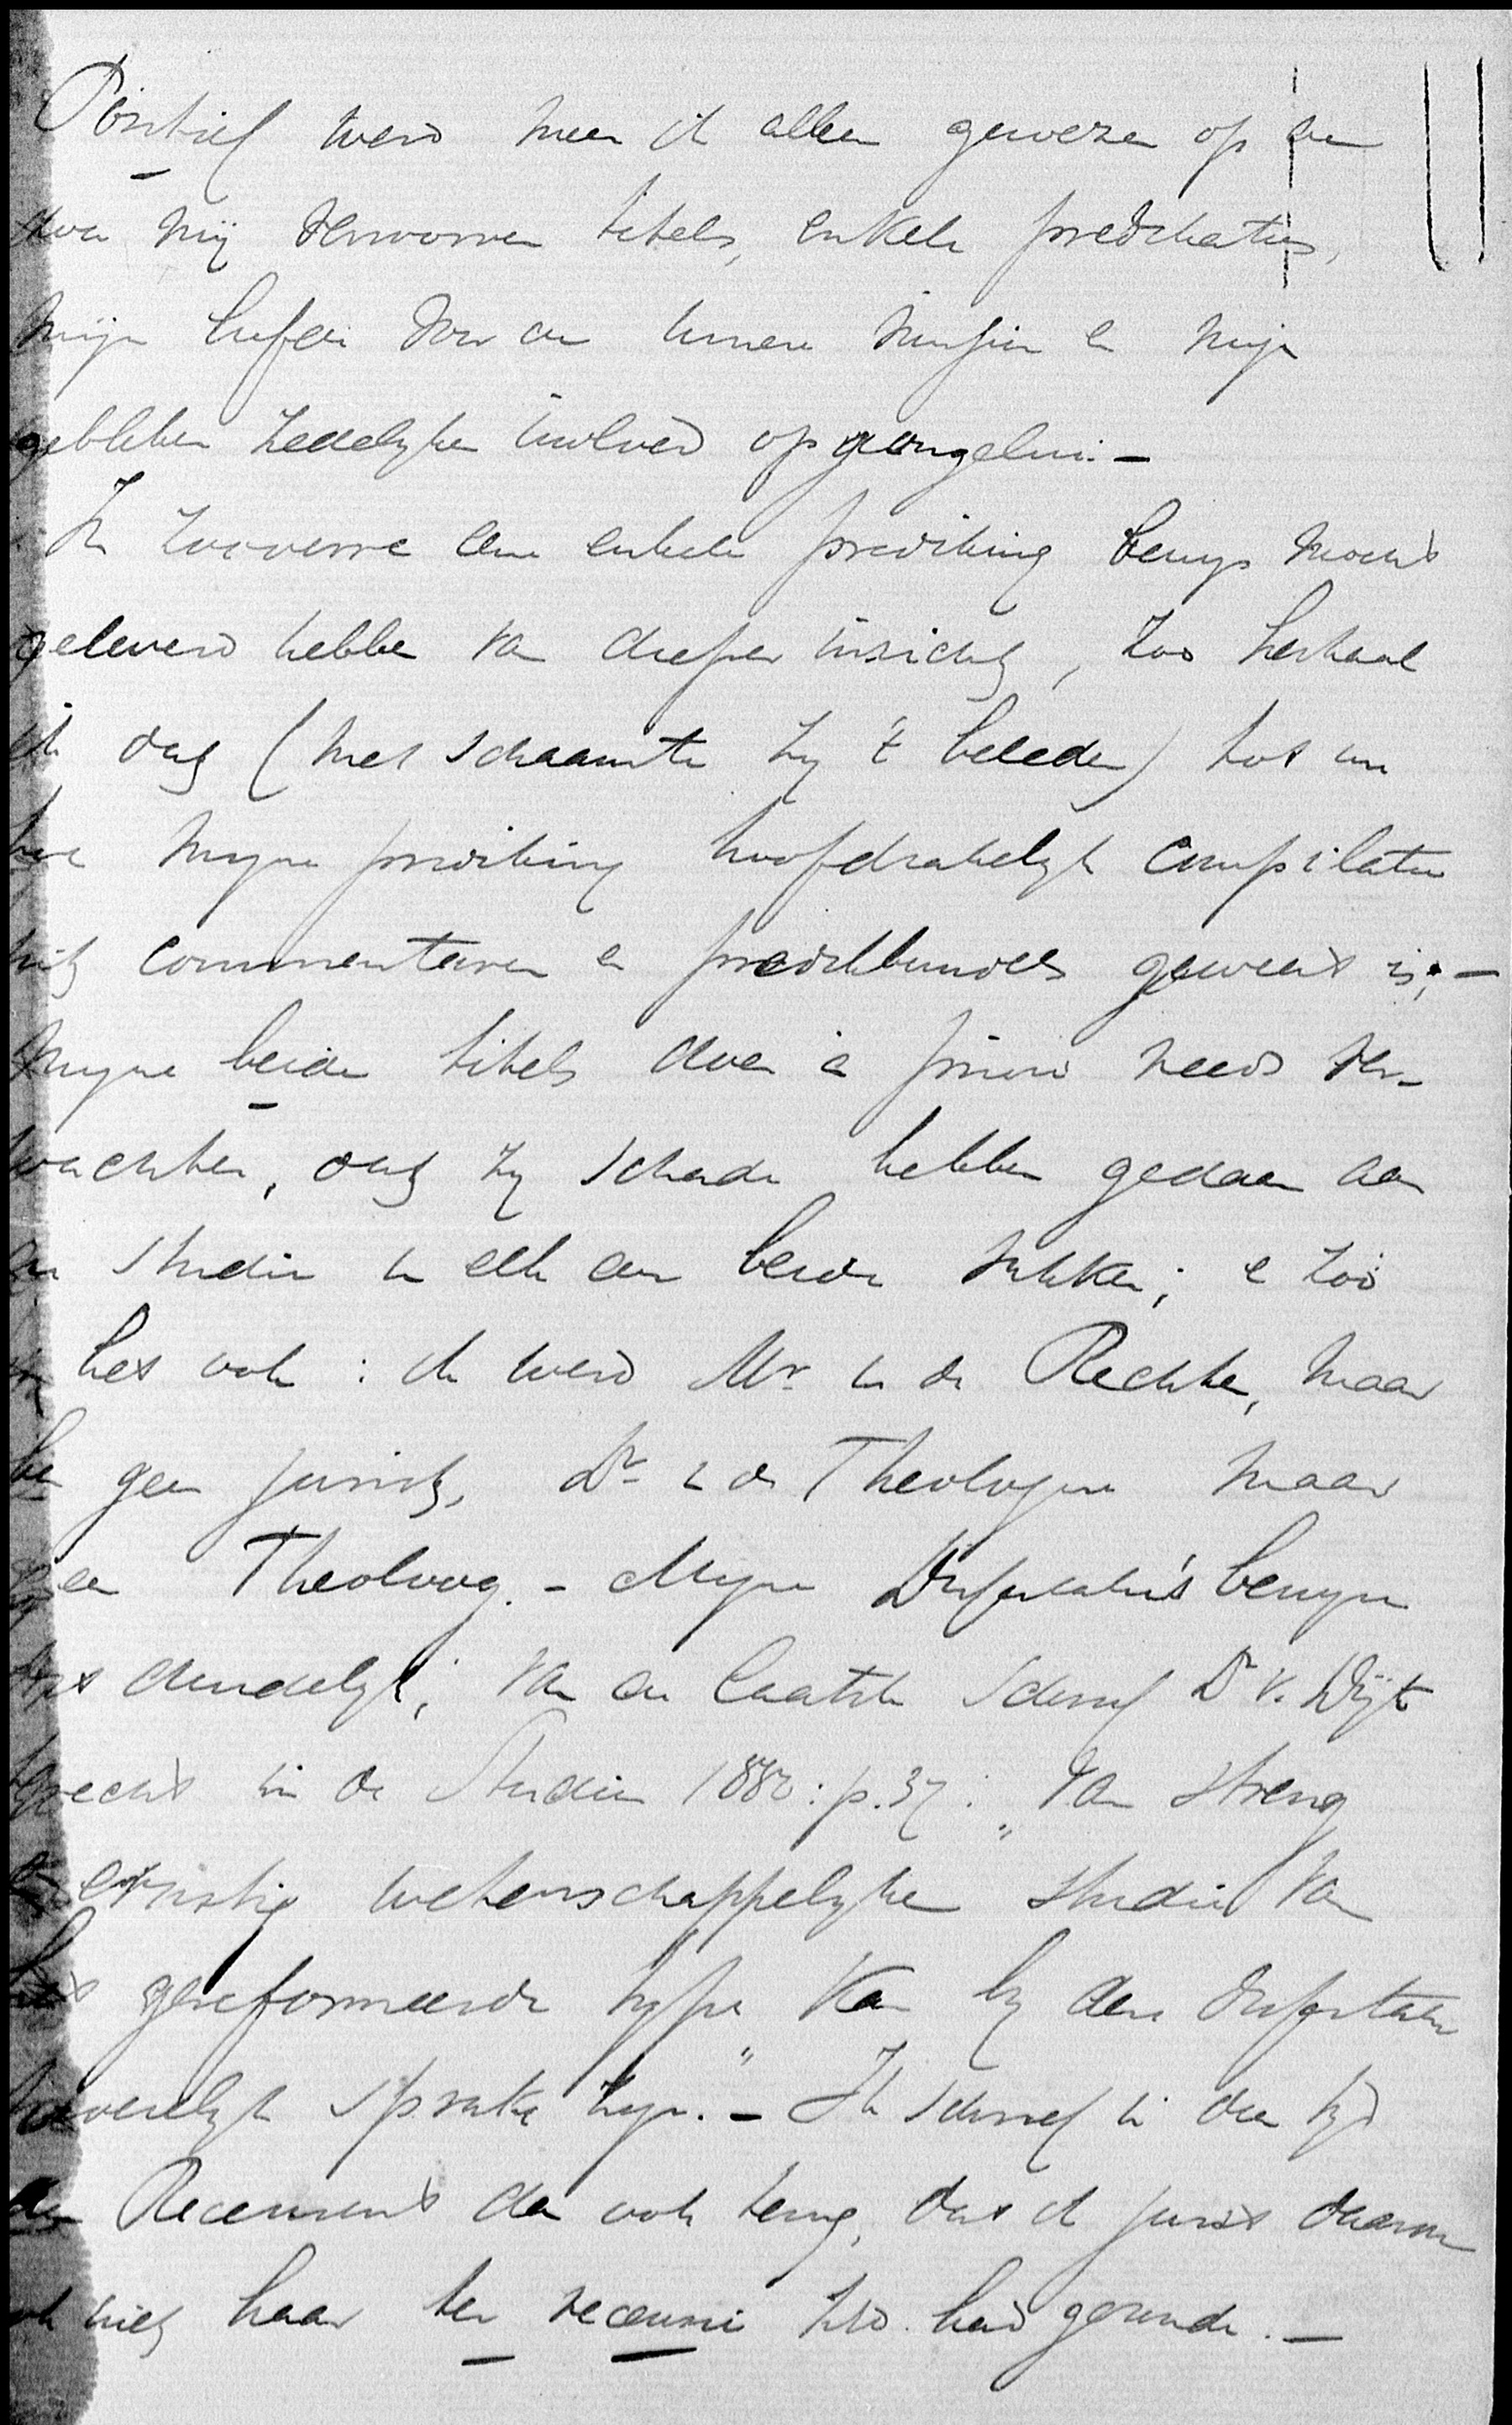 Positief werd meen ik alleen gewezen op de
door mij verworven titels, enkele predicaties,
mijn liefde voor de innere mission en mijn
gebleken zedelijken invloed op jongelui. —
In zooverre eene enkele prediking bewijs mocht
geleverd hebben van dieper inzicht, zoo herhaal
ik dat (met schaamte zij 't beleden) tot nu
toe mijne prediking hoofdzakelijk compilatie
uit commentaren en preekbundels geweest is; —
mijne beide titels doen à priori reeds ver-
wachten, dat zij schade hebben gedaan aan
de studie in elk der beide vakken; en zoo
is het ook: ik werd Mr in de Rechten, maar
ben geen jurist, Dr in de Theologie maar
geen Theoloog. - Mijne Dissertatie's bewijzen
dat duidelijk; van de laatste schreef Dr v. Dijk
terecht in de Studiën 1880: p. 37: "Van streng
en ernstig wetenschappelijke studie van
het gereformeerde type" kan bij deze dissertatie
moeielijk sprake zijn. - Ik schreef in der tijd
den Recensent dan ook terug, dat ik juist daarom
ook niet haar ter recensie had gezonden. —